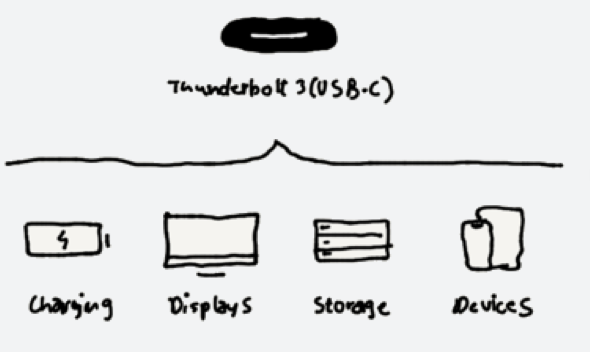 Thunderbolt 3 (USB-C)
Charging
Displays
Storage
Devices